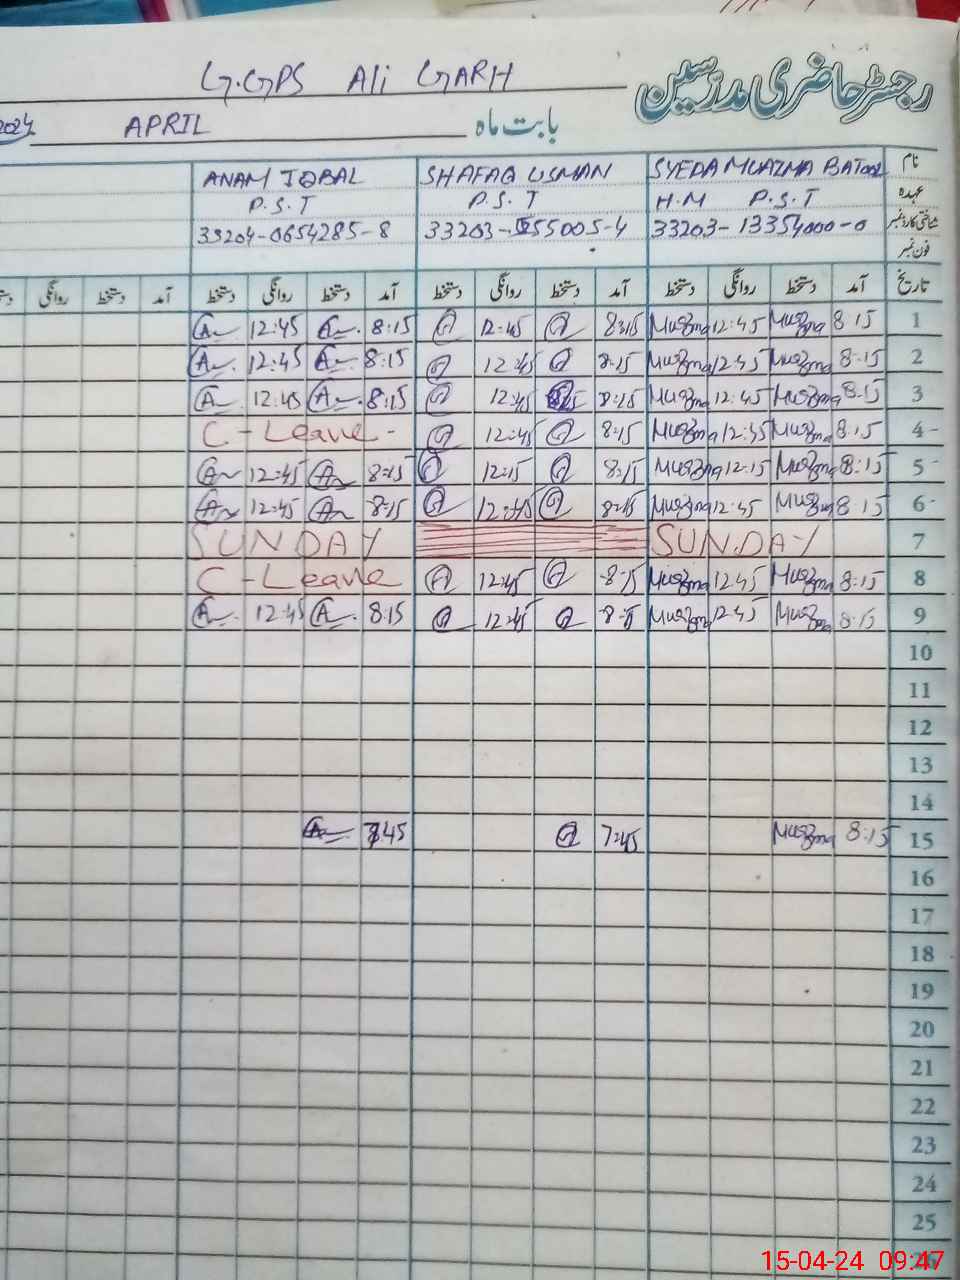 G.GPS Ali GARH رجسٹر حاضری مدرسین
2024 APRIL بابت ماہ
ANAM IQBAL SHAFAQ USMAN SYEDA MUAZMA BATOOL نام
P.S.T P.S.T H.M P.S.T عہدہ
33204-0654285-8 33203-555005-4 33203-13354000-0 شناختی کارڈ نمبر
فون نمبر
روانگی دستخط آمد دستخط روانگی دستخط آمد دستخط روانگی دستخط آمد دستخط روانگی دستخط آمد تاریخ
A 12:45 A 8:15 12:45 8:15 Muazma 12:45 Muazma 8:15 1
A 12:45 A 8:15 12:45 8:15 Muazma 12:45 Muazma 8:15 2
A 12:45 A 8:15 12:45 8:15 Muazma 12:45 Muazma 8:15 3
C-Leave- 12:45 8:15 Muazma 12:45 Muazma 8:15 4-
A 12:45 A 8:15 12:15 8:15 Muazma 12:15 Muazma 8:15 5-
A 12:45 A 8:15 12:45 8:15 Muazma 12:45 Muazma 8:15 6-
SUNDAY SUNDAY 7
C-Leave 12:45 8:15 Muazma 12:45 Muazma 8:15 8
A 12:45 A 8:15 12:45 8:15 Muazma 12:45 Muazma 8:15 9
10
11
12
13
14
A 7:45 7:45 Muazma 8:15 15
16
17
18
19
20
21
22
23
24
25
15-04-24 09:47